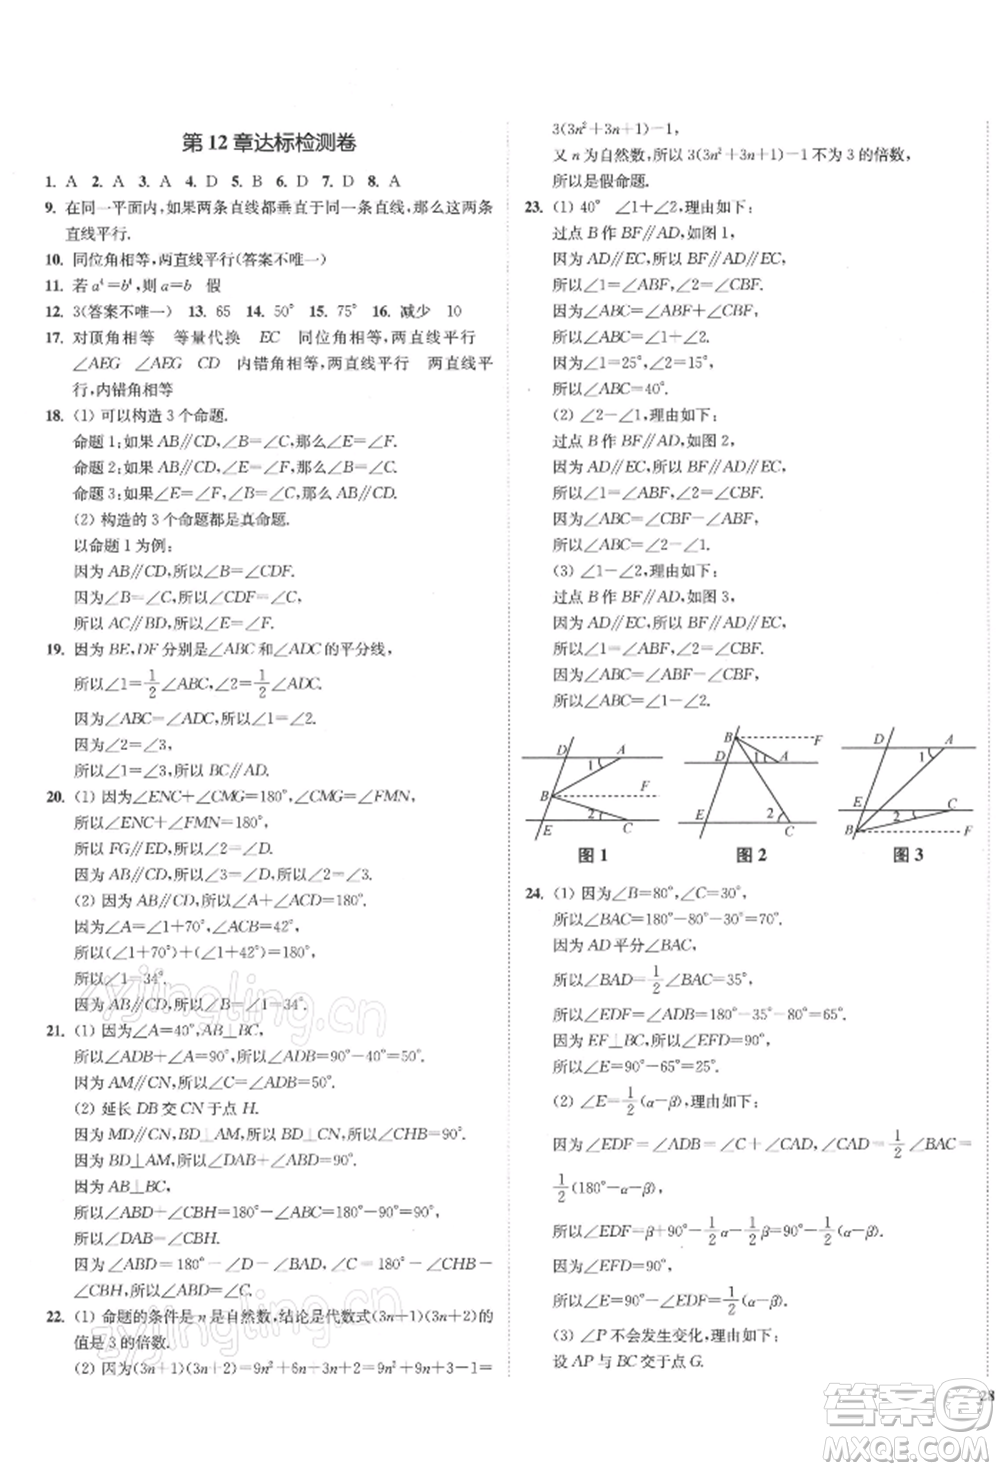 第 12 章达标检测卷
1. A 2. A 3. A 4. D 5. B 6. D 7. D 8. A
9. 在同一平面内,如果两条直线都垂直于同一条直线,那么这两条
直线平行.
10. 同位角相等,两直线平行(答案不唯一)
11. 若 a⁴=b⁴,则 a=b 假
12. 3(答案不唯一) 13. 65 14. 50° 15. 75° 16. 减少 10
17. 对顶角相等 等量代换 EC 同位角相等,两直线平行
∠AEG ∠AEG CD 内错角相等,两直线平行 两直线平
行,内错角相等
18. (1) 可以构造 3 个命题.
命题 1:如果 AB∥CD,∠B=∠C,那么∠E=∠F.
命题 2:如果 AB∥CD,∠E=∠F,那么∠B=∠C.
命题 3:如果∠E=∠F,∠B=∠C,那么 AB∥CD.
(2) 构造的 3 个命题都是真命题.
以命题 1 为例:
因为 AB∥CD,所以∠B=∠CDF.
因为∠B=∠C,所以∠C=∠CDF.
所以 AC∥BD.所以∠E=∠F.
19. 因为 BE,DF 分别是∠ABC 和∠ADC 的平分线,
所以∠1=1/2∠ABC,∠2=1/2∠ADC.
因为∠ABC=∠ADC,所以∠1=∠2.
因为∠2=∠3,
所以∠1=∠3.所以 BC∥AD.
20. (1) 因为∠ENC+∠CMG=180°,∠CMG=∠FMN,
所以∠ENC+∠FMN=180°.
所以 FG∥ED.所以∠2=∠D.
因为∠1=∠2,所以∠1=∠D.所以 AB∥CD.
(2) 因为 AB∥CD.所以∠A+∠ACD=180°.
因为∠A=∠1+70°,∠ACB=42°,
所以(∠1+70°)+(∠1+42°)=180°,
所以∠1=34°.
因为 AB∥CD,所以∠B=∠1=34°.
21. (1) 因为∠A=40°,AB⊥BC,
所以∠ADB+∠A=90°,所以∠ADB=90°-40°=50°.
因为 AM∥CN,所以∠C=∠ADB=50°.
(2) 延长 DB 交 CN 于点 H.
因为 MD∥CN,BD⊥AM,所以 BD⊥CN,所以∠CHB=90°.
因为 BD⊥AM,所以∠DAB+∠ABD=90°.
因为 AB⊥BC,
所以∠ABD+∠CBH=180°-∠ABC=90°,
所以∠DAB=∠CBH.
因为∠ABD=180°-∠ADB-∠BAD,∠C=180°-∠CHB-
∠CBH,所以∠ABD=∠C.
22. (1) 命题的条件是 n 是自然数,结论是代数式(3n+1)(3n+2)的
值是 3 的倍数.
(2) 因为(3n+1)(3n+2)=9n²+6n+3n+3-1=
3(3n²+3n+1)-1,
又 n 为自然数,所以 3(3n²+3n+1)-1 不为 3 的倍数,
所以是假命题.
23. (1) 40° ∠1+∠2,理由如下:
过点 B 作 BF∥AD,如图 1,
因为 AD∥EC,所以 BF∥AD∥EC,
所以∠1=∠ABF,∠2=∠CBF.
因为∠ABC=∠ABF+∠CBF,
所以∠ABC=∠1+∠2.
因为∠1=25°,∠2=15°,
所以∠ABC=40°.
(2) ∠2-∠1,理由如下:
过点 B 作 BF∥AD,如图 2,
因为 AD∥EC,所以 BF∥AD∥EC,
所以∠1=∠ABF,∠2=∠CBF.
因为∠ABC=∠CBF-∠ABF,
所以∠ABC=∠2-∠1.
(3) ∠1-∠2,理由如下:
过点 B 作 BF∥AD,如图 3,
因为 AD∥EC,所以 BF∥AD∥EC,
所以∠1=∠ABF,∠2=∠CBF.
因为∠ABC=∠ABF-∠CBF,
所以∠ABC=∠1-∠2.
D A 1 B F 2 E C
B F D 1 A E 2 C
D 1 A E 2 C B F
图 1 图 2 图 3
24. (1) 因为∠B=80°,∠C=30°,
所以∠BAC=180°-80°-30°=70°.
因为 AD 平分∠BAC,
所以∠BAD=1/2∠BAC=35°,
所以∠EDF=∠ADB=180°-80°-35°=65°.
因为 EF⊥BC,所以∠EFD=90°,
所以∠E=90°-65°=25°.
(2) ∠E=1/2(α-β),理由如下:
因为∠EDF=∠ADB=∠C+∠CAD,∠CAD=1/2∠BAC=
1/2(180°-α-β),
所以∠EDF=β+90°-1/2α-1/2β=90°-1/2(α-β).
因为∠EFD=90°,
所以∠E=90°-∠EDF=1/2(α-β).
(3) ∠P 不会发生变化,理由如下:
设 AP 与 BC 交于点 G.
28
zyjingling.cn
zyjingling.cn
答案圈
MXQE.COM